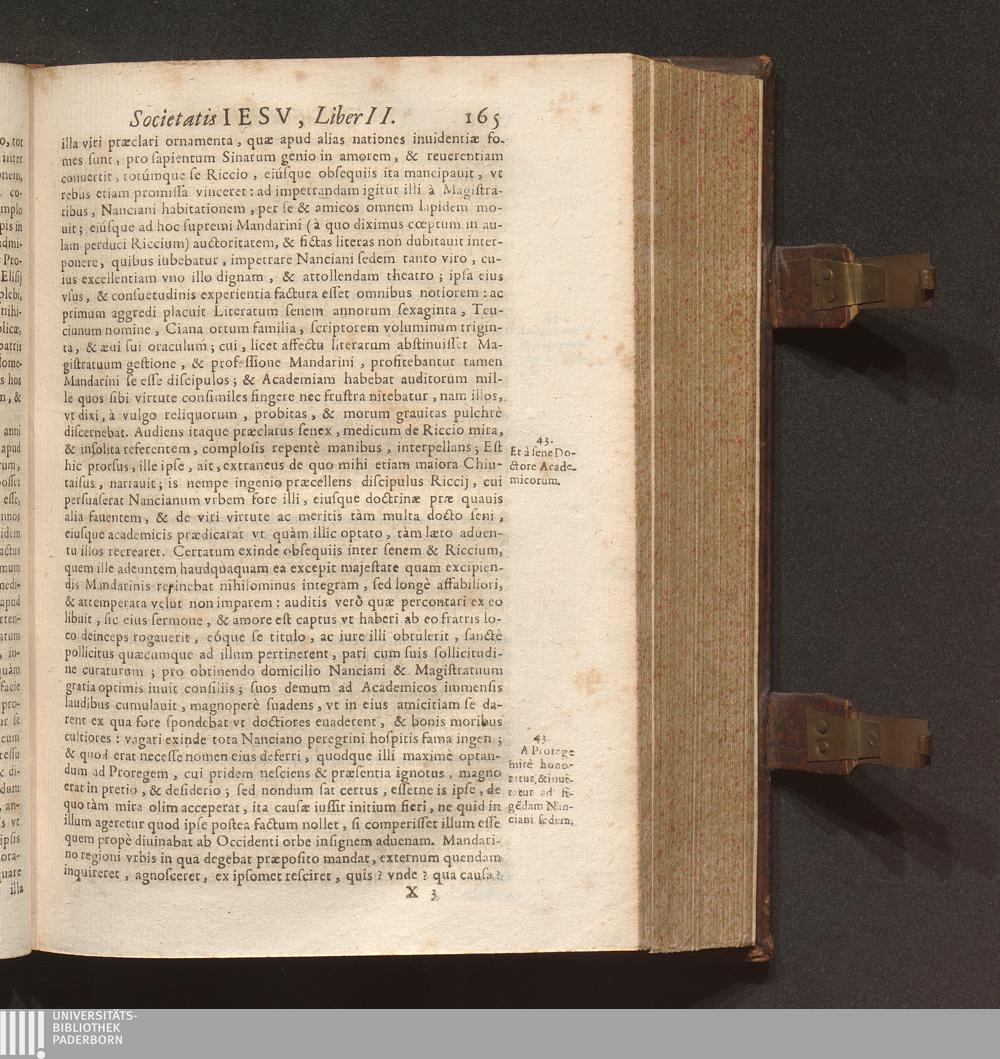 Societatis IESV, Liber II. 165
illa viri præclari ornamenta, quæ apud alias nationes inuidentiæ fo-
mes sunt, pro sapientum Sinarum genio in amorem, & reuerentiam
conuertit, totúmque se Riccio, eiúsque obsequiis ita mancipauit, vt
rebus etiam promissa vinceret: ad impetrandam igitur illi à Magistra-
tibus, Nanciani habitationem, per se & amicos omnem lapidem mo-
uit; eiúsque ad hoc supremi Mandarini (à quo diximus cœptum in au-
lam perduci Riccium) auctoritatem, & fictas literas non dubitauit inter-
ponere, quibus iubebatur, impetrare Nanciani sedem tanto viro, cu-
ius excellentiam vno illo dignam, & attollendam theatro; ipsa eius
vsus, & consuetudinis experientia factura esset omnibus notiorem: ac
primum aggredi placuit Literatum senem annorum sexaginta, Teu-
ciunum nomine, Ciana ortum familia, scriptorem voluminum trigin-
ta, & æui sui oraculum; cui, licet affectu literarum abstinuisset Ma-
gistratuum gestione, & professione Mandarini, profitebantur tamen
Mandarini se esse discipulos; & Academiam habebat auditorum mil-
le quos sibi virtute consimiles fingere nec frustra nitebatur, nam illos,
vt dixi, à vulgo reliquorum, probitas, & morum grauitas pulchrè
discernebat. Audiens itaque præclarus senex, medicum de Riccio mira,
& insolita referentem, complosis repentè manibus, interpellans; Est
hic prorsus, ille ipse, ait, extraneus de quo mihi etiam maiora Chiu-
taisus, narrauit; is nempe ingenio præcellens discipulus Riccij, cui
persuaserat Nancianum vrbem fore illi, eiusque doctrinæ præ quauis
alia fauentem, & de viri virtute ac meritis tàm multa docto seni,
eiusque academicis prædicarat vt quàm illic optato, tàm læto aduen-
tu illos recrearet. Certatum exinde obsequiis inter senem & Riccium,
quem ille adeuntem haudquaquam ea excepit majestate quam excipien-
dis Mandarinis retinebat nihilominus integram, sed longè affabiliori,
& attemperata velut non imparem: auditis verò quæ percontari ex eo
libuit, sic eius sermone, & amore est captus vt haberi ab eo fratris lo-
co deinceps rogauerit, eóque se titulo, ac iure illi obtulerit, sanctè
pollicitus quæcumque ad illum pertinerent, pari cum suis sollicitudi-
ne curaturum; pro obtinendo domicilio Nanciani & Magistratuum
gratia optimis iuuit consiliis; suos demum ad Academicos immensis
laudibus cumulauit, magnoperè suadens, vt in eius amicitiam se da-
rent ex qua fore spondebat vt doctiores euaderent, & bonis moribus
cultiores: vagari exinde tota Nanciano peregrini hospitis fama ingen;
& quod erat necesse nomen eius deferri, quodque illi maximè optan-
dum ad Proregem, cui pridem nesciens & præsentia ignotus, magno
erat in pretio, & desiderio; sed nondum sat certus, essetne is ipse, de
quo tàm mira olim acceperat, ita causæ iussit initium fieri, ne quid in
illum ageretur quod ipse postea factum nollet, si comperisset illum esse
quem propè diuinabat ab Occidenti orbe insignem aduenam. Mandari-
no regioni vrbis in qua degebat præposito mandat, externum quendam
inquireret, agnosceret, ex ipsomet resciret, quis? vnde? qua causa?
X 3
43.
Et à sene Do-
ctore Acade-
micorum.
43.
A Prorege
mirè hono-
ratur, & inui-
tatur ad fi-
gẽdam Nan-
ciani sedem.
illa
UNIVERSITÄTS-
BIBLIOTHEK
PADERBORN